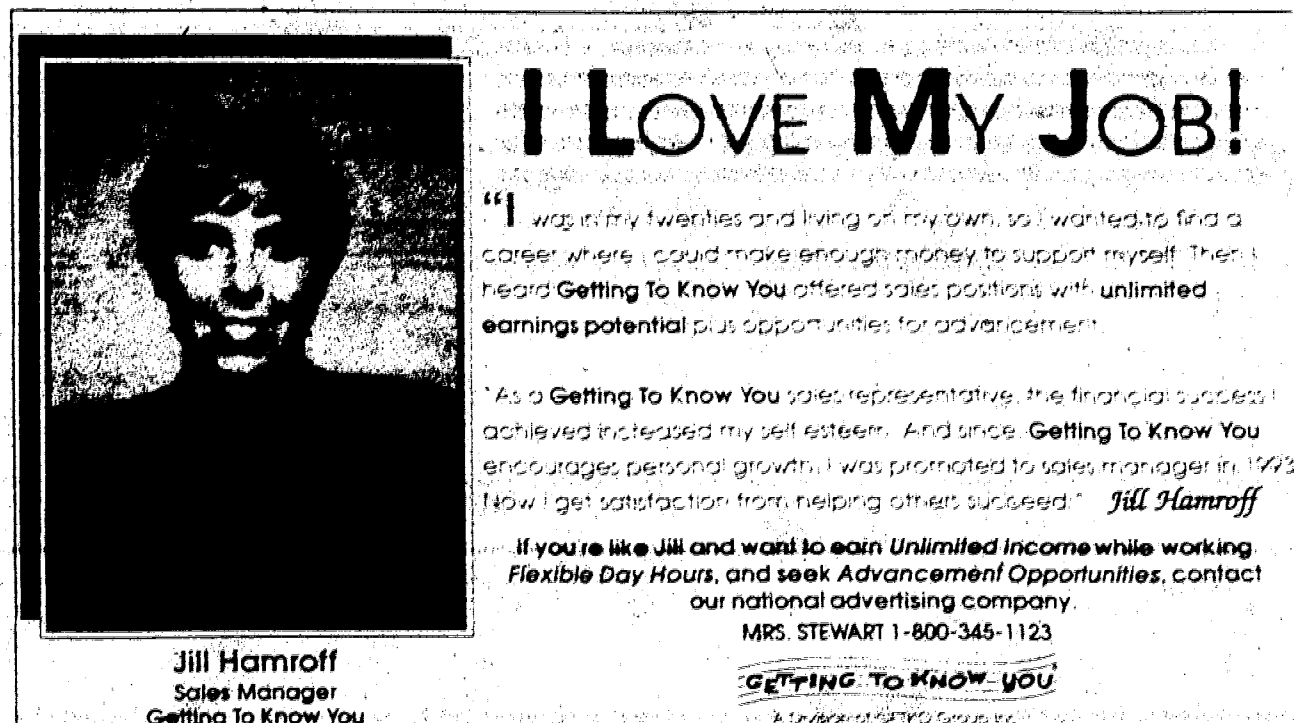 I LOVE MY JOB!
"I was in my twenties and living on my own, so I wanted to find a
career where I could make enough money to support myself. Then I
heard Getting To Know You offered sales positions with unlimited
earnings potential plus opportunities for advancement.
"As a Getting To Know You sales representative, the financial success I
achieved increased my self esteem. And since Getting To Know You
encourages personal growth, I was promoted to sales manager in 1993.
Now I get satisfaction from helping others succeed." Jill Hamroff
If you're like Jill and want to earn Unlimited Income while working
Flexible Day Hours, and seek Advancement Opportunities, contact
our national advertising company.
MRS. STEWART 1-800-345-1123
GETTING TO KNOW YOU
A Division of GETKO Group Inc.
Jill Hamroff
Sales Manager
Getting To Know You